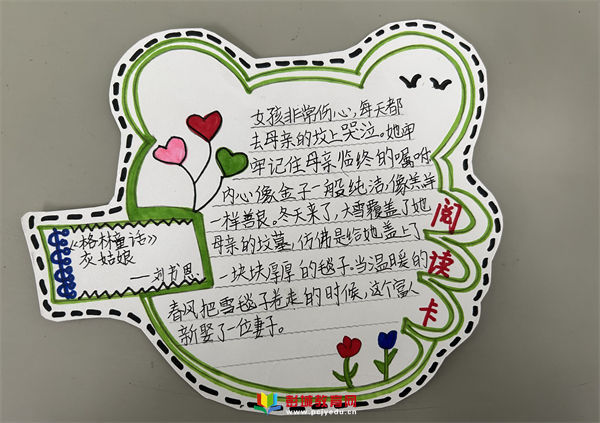 女孩非常伤心,每天都
去母亲的坟上哭泣。她牢
牢记住母亲临终的嘱咐
内心像金子一般纯洁,像羔羊
一样善良。冬天来了,大雪覆盖了她
母亲的坟墓,仿佛是给她盖上了
一块块厚厚的毯子.当温暖的
春风把雪毯子卷走的时候,这个富人
新娶了一位妻子。
《格林童话》
灰姑娘
——刘书恩
阅读卡
彭城教育网
www.pcjyedu.cn